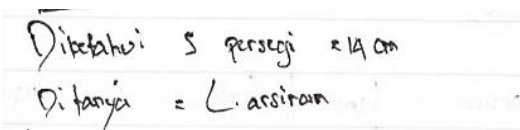 Diketahui S persegi = 14 cm
Ditanya = L. arsiran